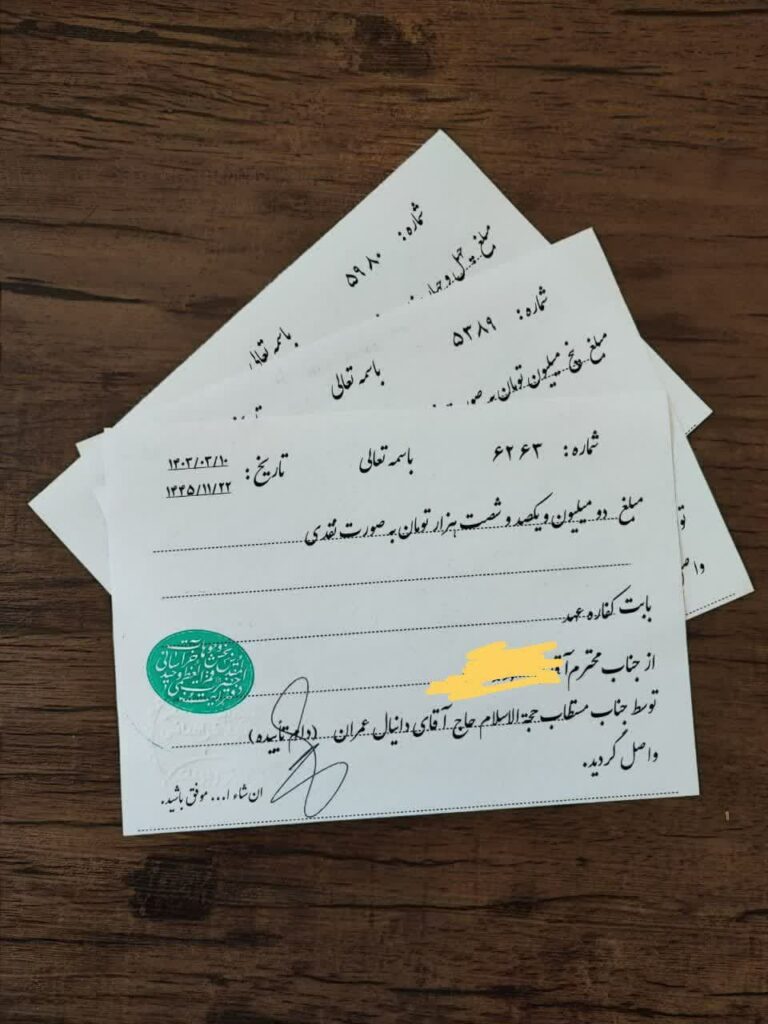 شماره: ۵۹۸۰
باسمه تعالی
مبلغ چهل و چهار
شماره: ۵۳۸۹
باسمه تعالی
مبلغ پنج میلیون تومان به صورت
شماره: ۶۲۶۳
باسمه تعالی
تاریخ: ۱۴۰۳/۰۳/۱۰
۱۴۴۵/۱۱/۲۲
مبلغ دو میلیون و یکصد و شصت هزار تومان به صورت نقدی
بابت کفاره عهد
از جناب محترم آقا
توسط جناب مستطاب حجة الاسلام حاج آقای دانیال عمران (دام تأییده)
واصل گردید.
ان شاء ا... موفق باشید.